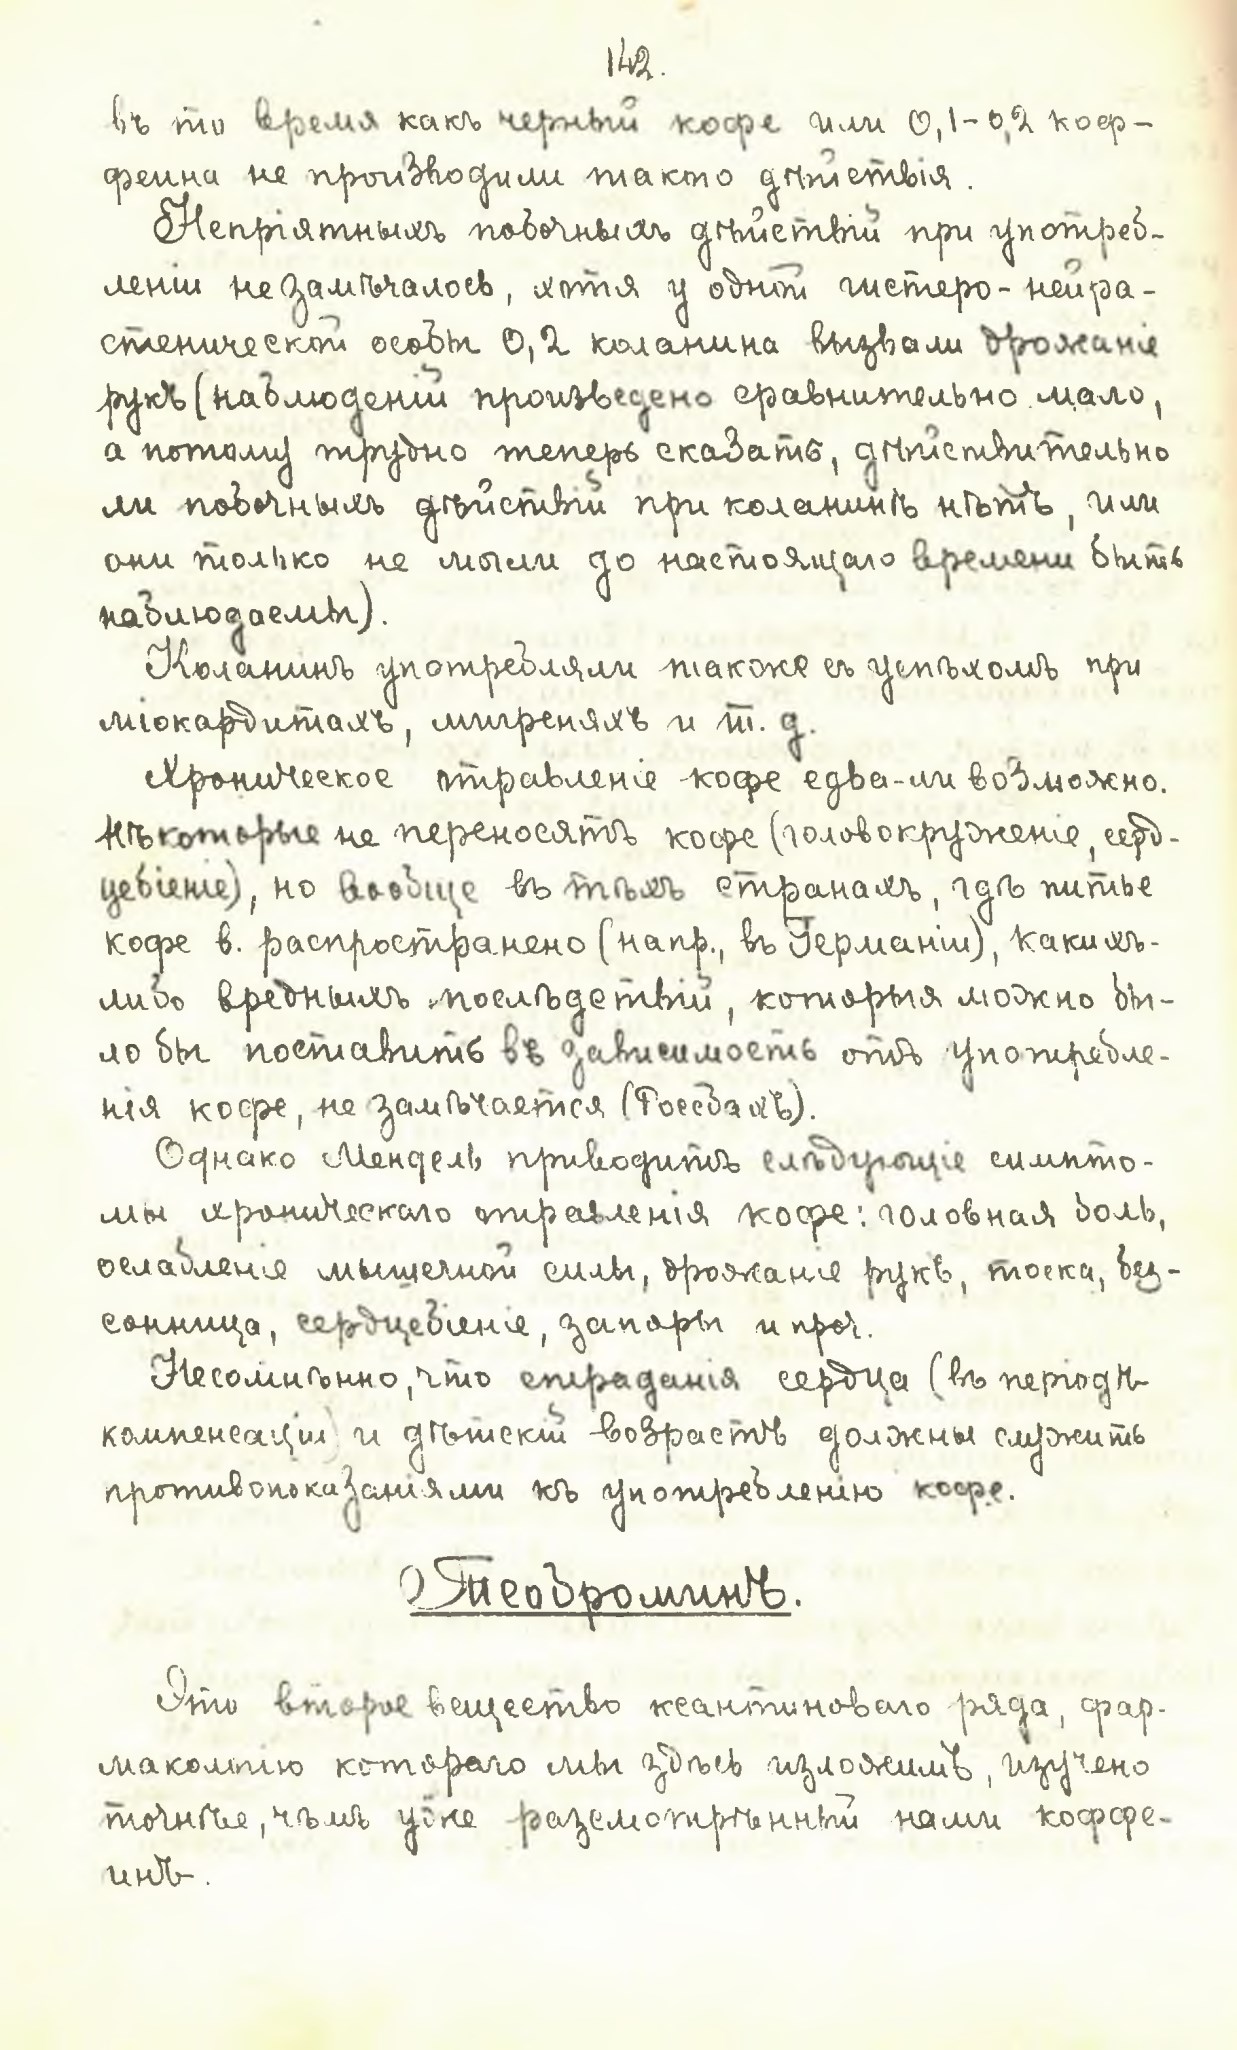 142.
въ то время какъ черный кофе или 0,1-0,2 коф-
феина не производили такого дѣйствія.
Непріятныхъ побочныхъ дѣйствій при употреб-
леніи не замѣчалось, хотя у одной гистеро-нейра-
стенической особы 0,2 коланина вызвали дрожаніе
рукъ (наблюденій произведено сравнительно мало,
а потому трудно теперь сказать, дѣйствительно
ли побочныхъ дѣйствій при коланинѣ нѣтъ, или
они только не могли до настоящаго времени быть
наблюдаемы).
Коланинъ употребляли также съ успѣхомъ при
міокардитахъ, мигреняхъ и т. д.
Хроническое отравленіе кофе едва-ли возможно.
Нѣкоторые не переносятъ кофе (головокруженіе, серд-
цебіеніе), но вообще въ тѣхъ странахъ, гдѣ питье
кофе в. распространено (напр., въ Германіи), какихъ-
либо вредныхъ послѣдствій, которыя можно бы-
ло бы поставить въ зависимость отъ употребле-
нія кофе, не замѣчается (Россбахъ).
Однако Мендель приводитъ слѣдующіе симпто-
мы хроническаго отравленія кофе: головная боль,
ослабленіе мышечной силы, дрожаніе рукъ, тоска, без-
сонница, сердцебіеніе, запоры и проч.
Несомнѣнно, что страданія сердца (въ періодѣ
компенсаціи) и дѣтскій возрастъ должны служить
противопоказаніями къ употребленію кофе.
Теоброминъ.
Это второе вещество ксантиноваго ряда, фар-
макологію котораго мы здѣсь изложимъ, изучено
точнѣе, чѣмъ уже разсмотрѣнный нами коффе-
инъ.